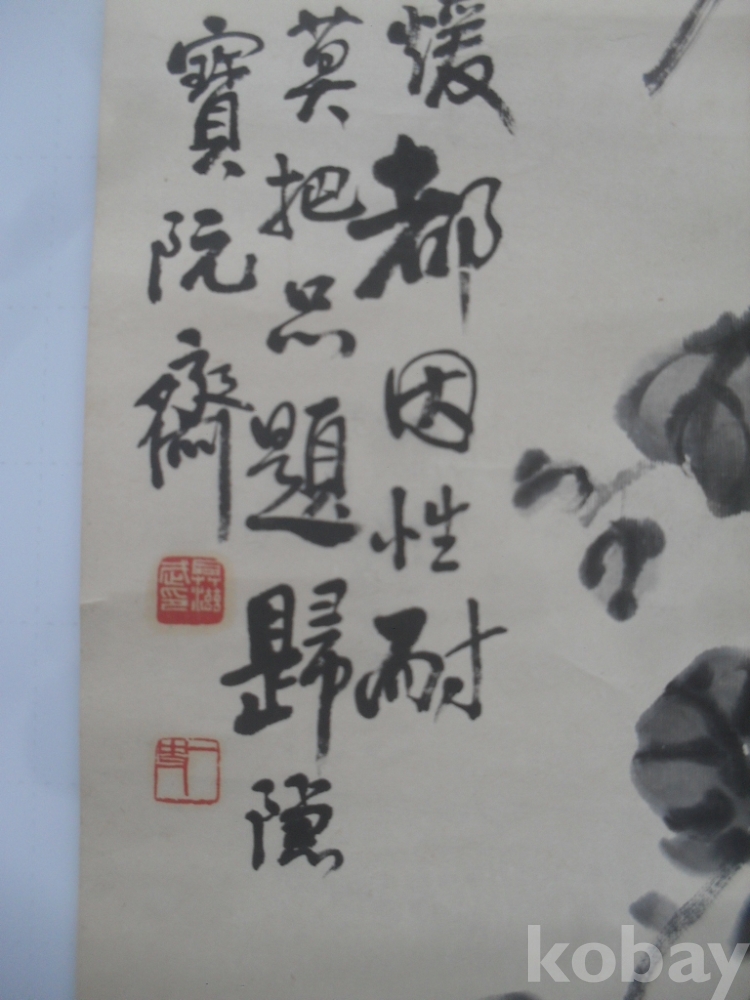 煖都因性耐
莫把品題歸隱
寶阮齋
kobay